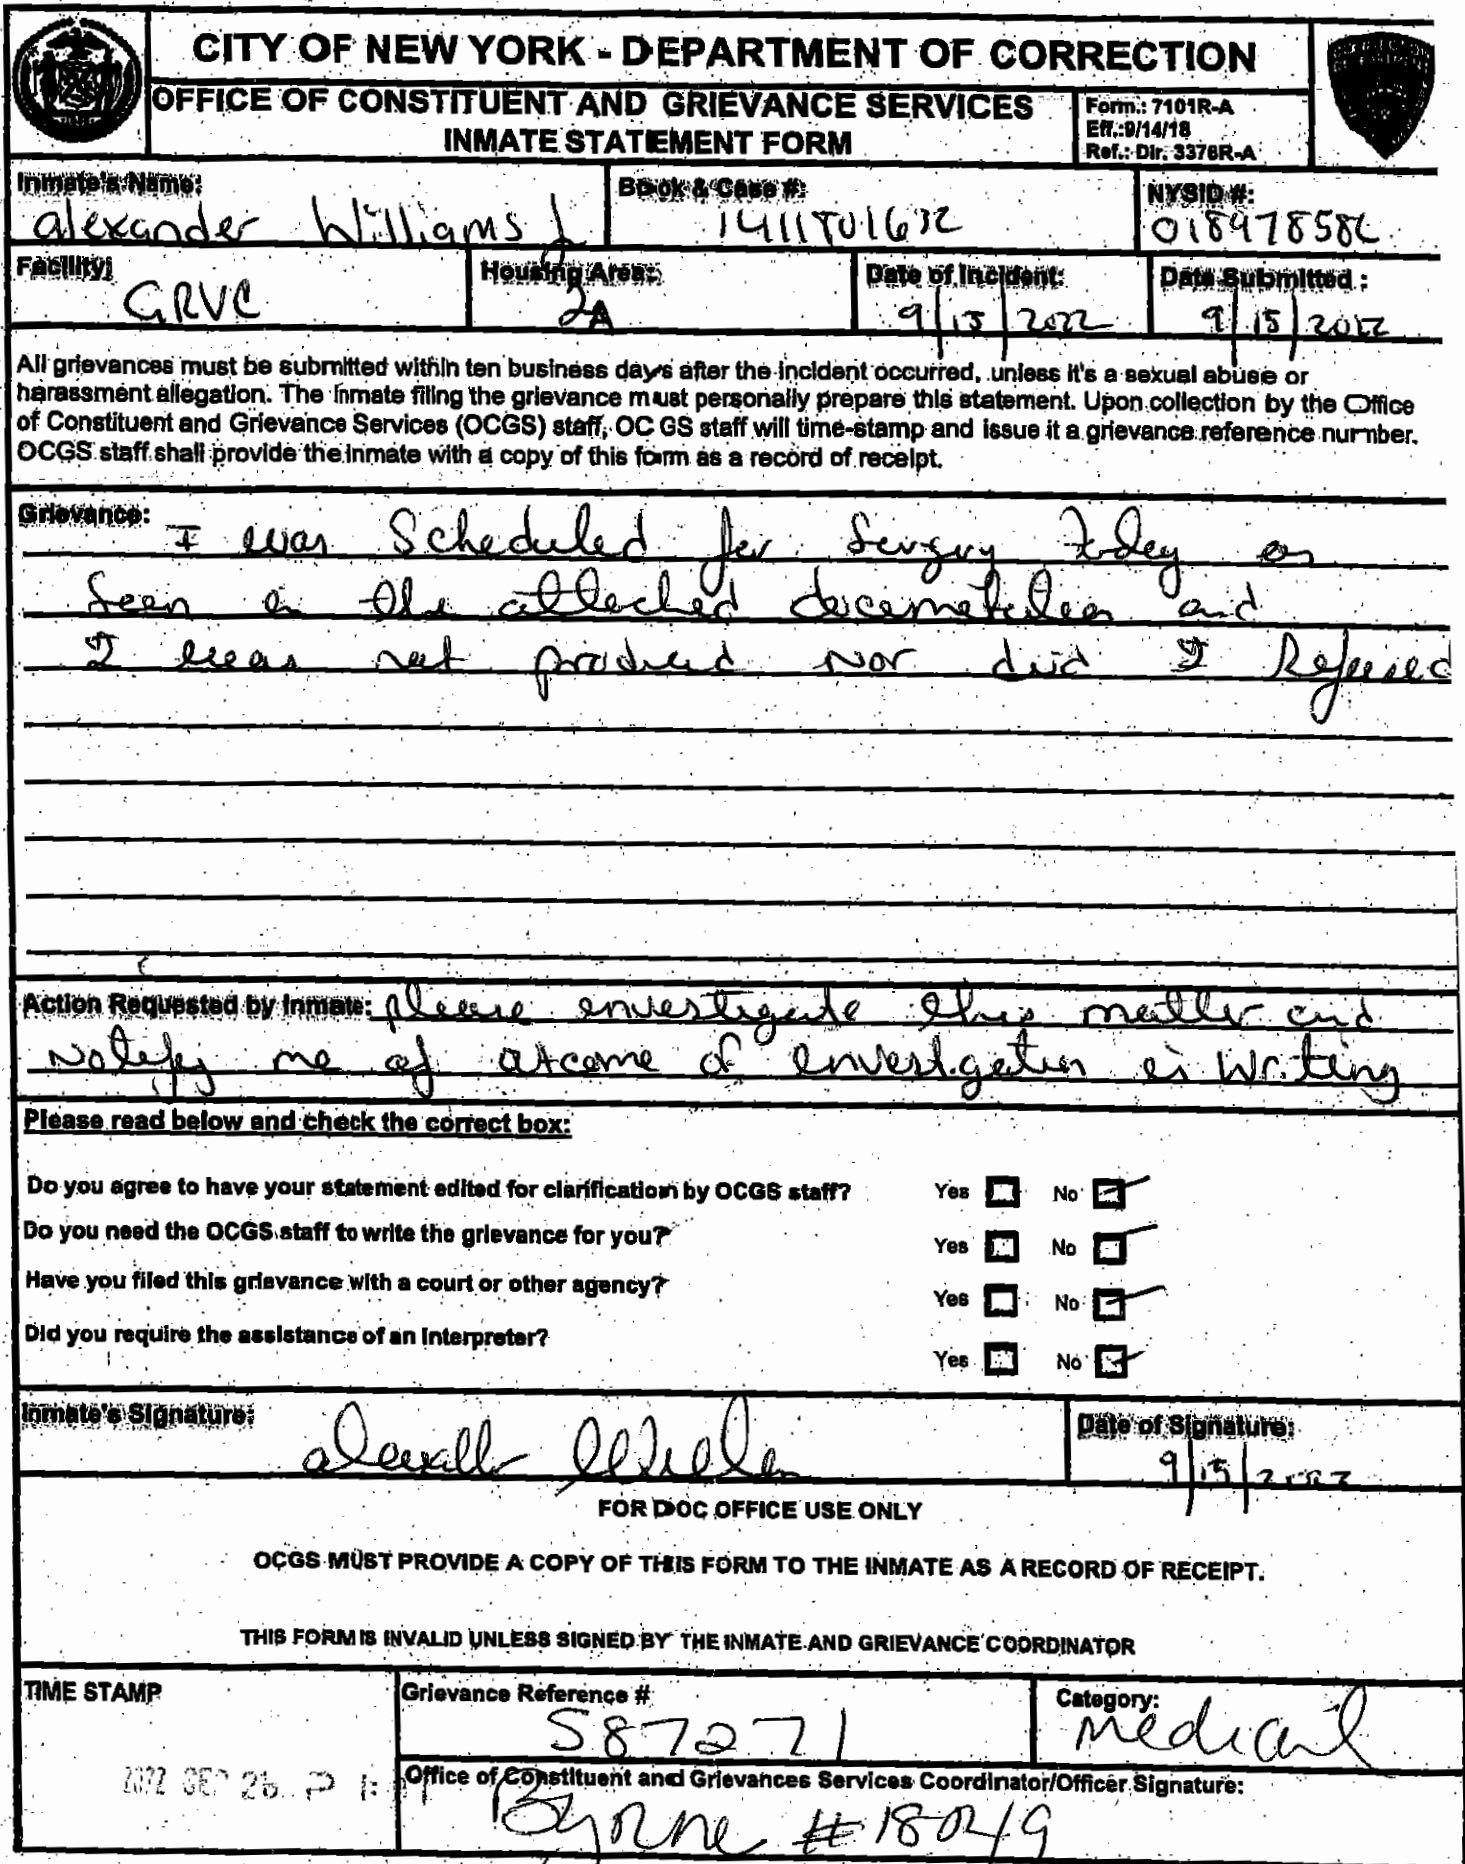 CITY OF NEW YORK - DEPARTMENT OF CORRECTION
OFFICE OF CONSTITUENT AND GRIEVANCE SERVICES
INMATE STATEMENT FORM
Form.: 7101R-A
Eff.:9/14/18
Ref.: Dir. 3376R-A
Inmate's Name:
Book & Case #:
NYSID #:
alexander Williams J
1411801632
Facility:
Housing Area:
Date of Incident:
Date Submitted :
GRVC
2A
9/15/2022
9/15/2022
All grievances must be submitted within ten business days after the incident occurred, unless it's a sexual abuse or
harassment allegation. The inmate filing the grievance must personally prepare this statement. Upon collection by the Office
of Constituent and Grievance Services (OCGS) staff, OCGS staff will time-stamp and issue it a grievance reference number.
OCGS staff shall provide the inmate with a copy of this form as a record of receipt.
Grievance:
I was Scheduled for Surgery today as
Seen in the attached and
I was not produced Nor did I Refused
Action Requested by Inmate: please envestigate this matter and
Notify me of of envestigation in Writing
Please read below and check the correct box:
Do you agree to have your statement edited for clarification by OCGS staff? Yes No
Do you need the OCGS staff to write the grievance for you? Yes No
Have you filed this grievance with a court or other agency? Yes No
Did you require the assistance of an interpreter? Yes No
Inmate's Signature:
Date of Signature:
9/15/2022
FOR DOC OFFICE USE ONLY
OCGS MUST PROVIDE A COPY OF THIS FORM TO THE INMATE AS A RECORD OF RECEIPT.
THIS FORM IS INVALID UNLESS SIGNED BY THE INMATE AND GRIEVANCE COORDINATOR
TIME STAMP
Grievance Reference #
Category:
587271
Medical
2022 SEP 26 P 1:
Office of Constituent and Grievances Services Coordinator/Officer Signature:
Byrne #18049